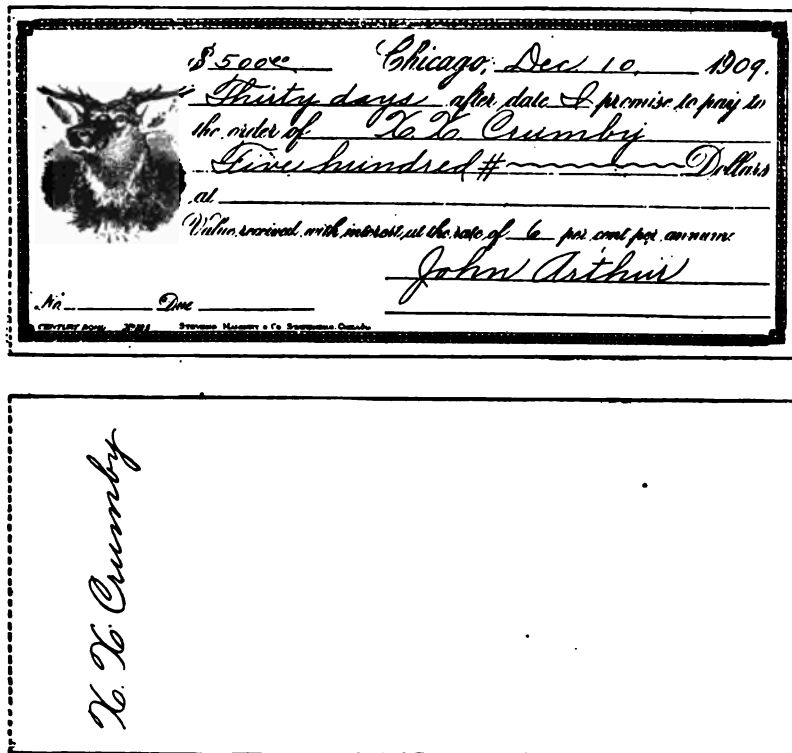 $500.00 Chicago, Dec. 10, 1909.
Thirty days after date I promise to pay to
the order of X. X. Crumby
Five hundred # Dollars
at
Value received with interest at the rate of 6 per cent per annum.
John Arthur
No. Due
X. X. Crumby